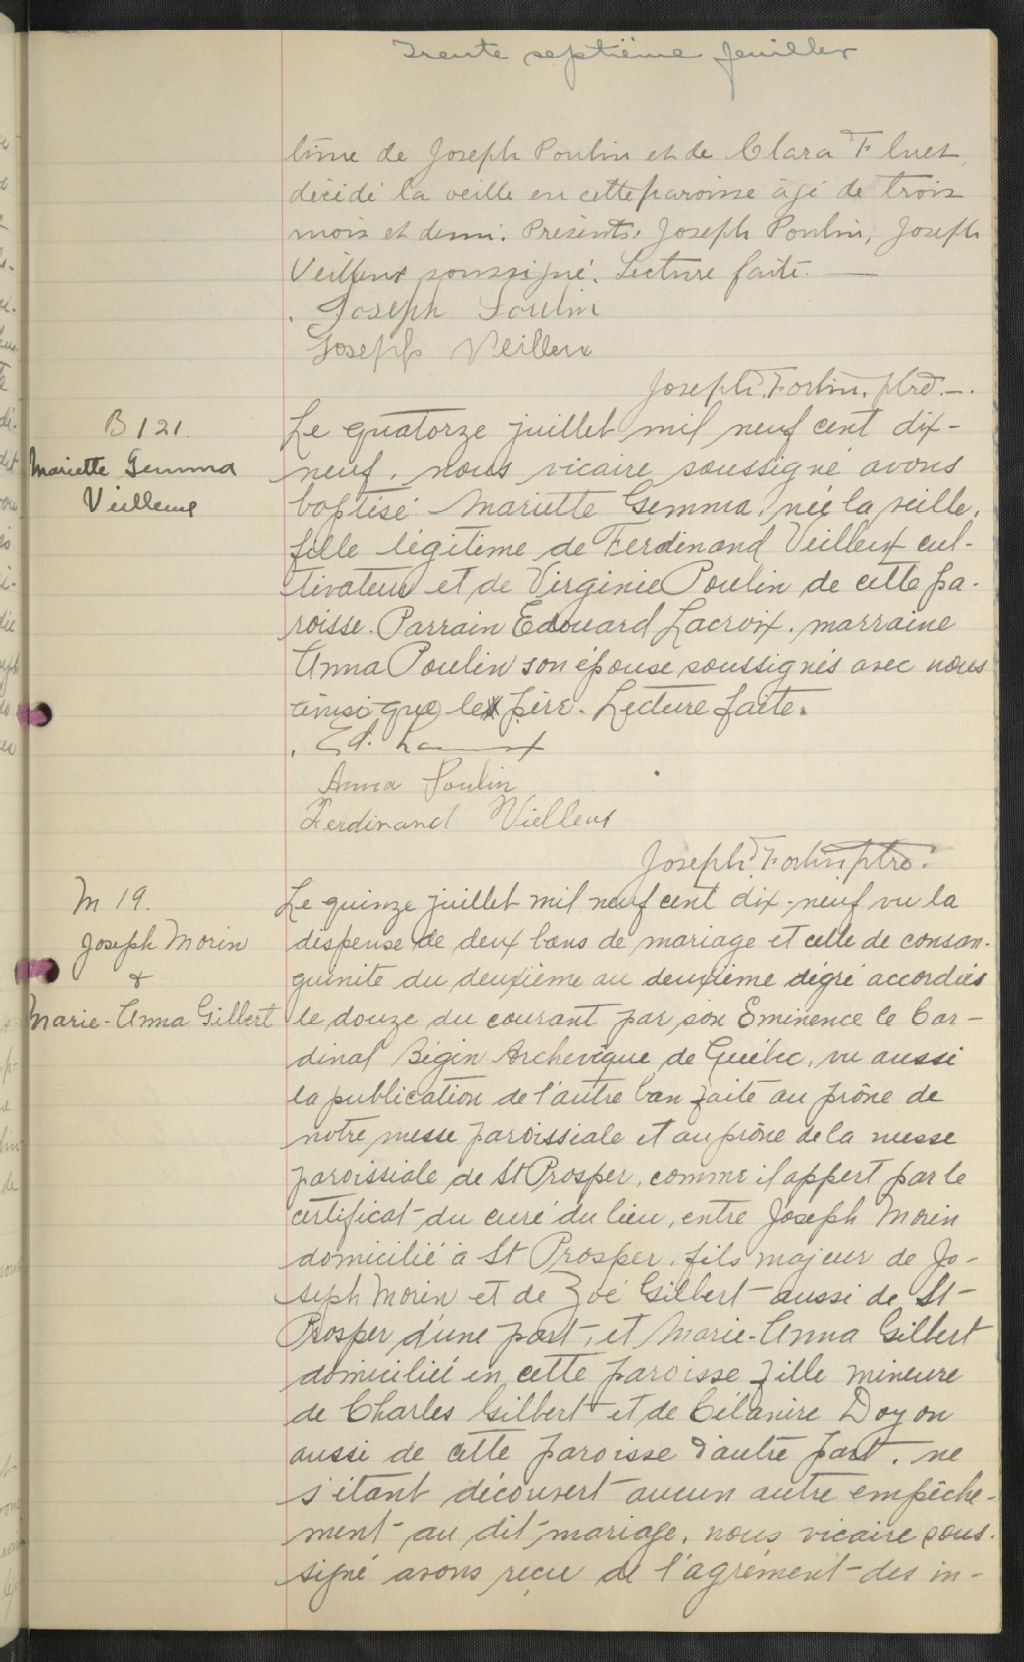 Trente septième feuillet
time de Joseph Poulin et de Clara Fluet,
décédé la veille en cette paroisse âgé de trois
mois et demi. Présents: Joseph Poulin, Joseph
Veilleux soussigné. Lecture faite. —
Joseph Poulin
Joseph Veilleux
Joseph Fortin, ptre. —.
B 121.
Mariette Gemma
Veilleux
Le quatorze juillet mil neuf cent dix-
neuf, nous vicaire soussigné avons
baptisé Mariette Gemma, née la veille,
fille légitime de Ferdinand Veilleux cul-
tivateur et de Virginie Poulin de cette pa-
roisse. Parrain Edouard Lacroix, marraine
Anna Poulin son épouse soussignés avec nous
ainsi que le père. Lecture faite.
Ed. Lacroix
Anna Poulin
Ferdinand Vielleux
Joseph Fortin ptre.
M 19.
Joseph Morin
&
Marie-Anna Gilbert
Le quinze juillet mil neuf cent dix-neuf vu la
dispense de deux bans de mariage et celle de consan-
guinité du deuxième au deuxième dégré accordées
le douze du courant par son Eminence le Car-
dinal Bégin Archevêque de Québec, vu aussi
la publication de l'autre ban faite au prône de
notre messe paroissiale et au prône de la messe
paroissiale de St Prosper, comme il appert par le
certificat du curé du lieu, entre Joseph Morin
domicilié à St Prosper, fils majeur de Jo-
seph Morin et de Zoé Gilbert aussi de St-
Prosper d'une part, et Marie-Anna Gilbert
domiciliée en cette paroisse fille mineure
de Charles Gilbert et de Célanire Doyon
aussi de cette paroisse d'autre part, ne
s'étant découvert aucun autre empêche-
ment au dit mariage, nous vicaire sous-
signé avons reçu de l'agrément des in-